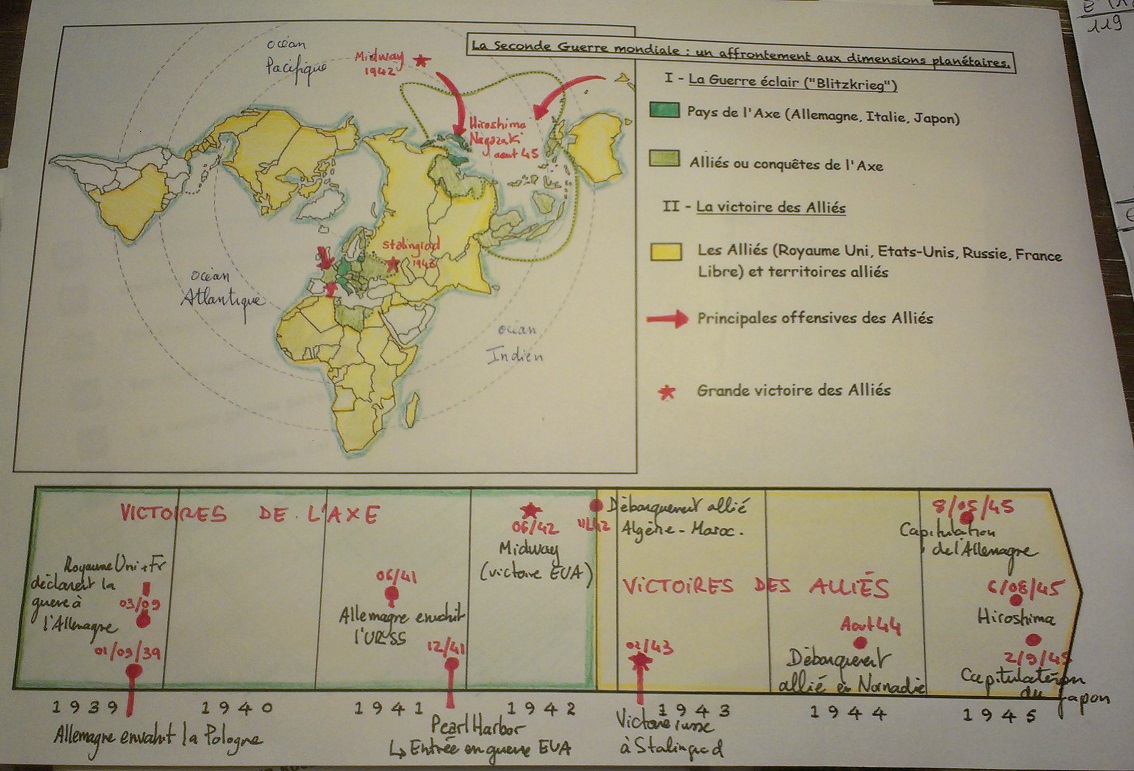 119
La Seconde Guerre mondiale : un affrontement aux dimensions planétaires.
océan
Pacifique
Midway
1942
Hiroshima
Nagazaki
aout 45
Stalingrad
océan
Atlantique
océan
Indien
I - La Guerre éclair ("Blitzkrieg")
Pays de l'Axe (Allemagne, Italie, Japon)
Alliés ou conquêtes de l'Axe
II - La victoire des Alliés
Les Alliés (Royaume Uni, Etats-Unis, Russie, France
Libre) et territoires alliés
Principales offensives des Alliés
Grande victoire des Alliés
VICTOIRES DE L'AXE
Royaume Uni + Fr
déclarent la
guerre à
l'Allemagne
03/09
01/09/39
06/41
Allemagne envahit
l'URSS
12/41
06/42
Midway
(victoire EUA)
11/42
Débarquement allié
Algérie - Maroc.
VICTOIRES DES ALLIÉS
02/43
Aout 44
Débarquement
allié en Normandie
8/05/45
Capitulation
de l'Allemagne
6/08/45
Hiroshima
2/9/45
Capitulation
du Japon
1939
1940
1941
1942
1943
1944
1945
Allemagne envahit la Pologne
Pearl Harbor
↳ Entrée en guerre EUA
Victoire russe
à Stalingrad